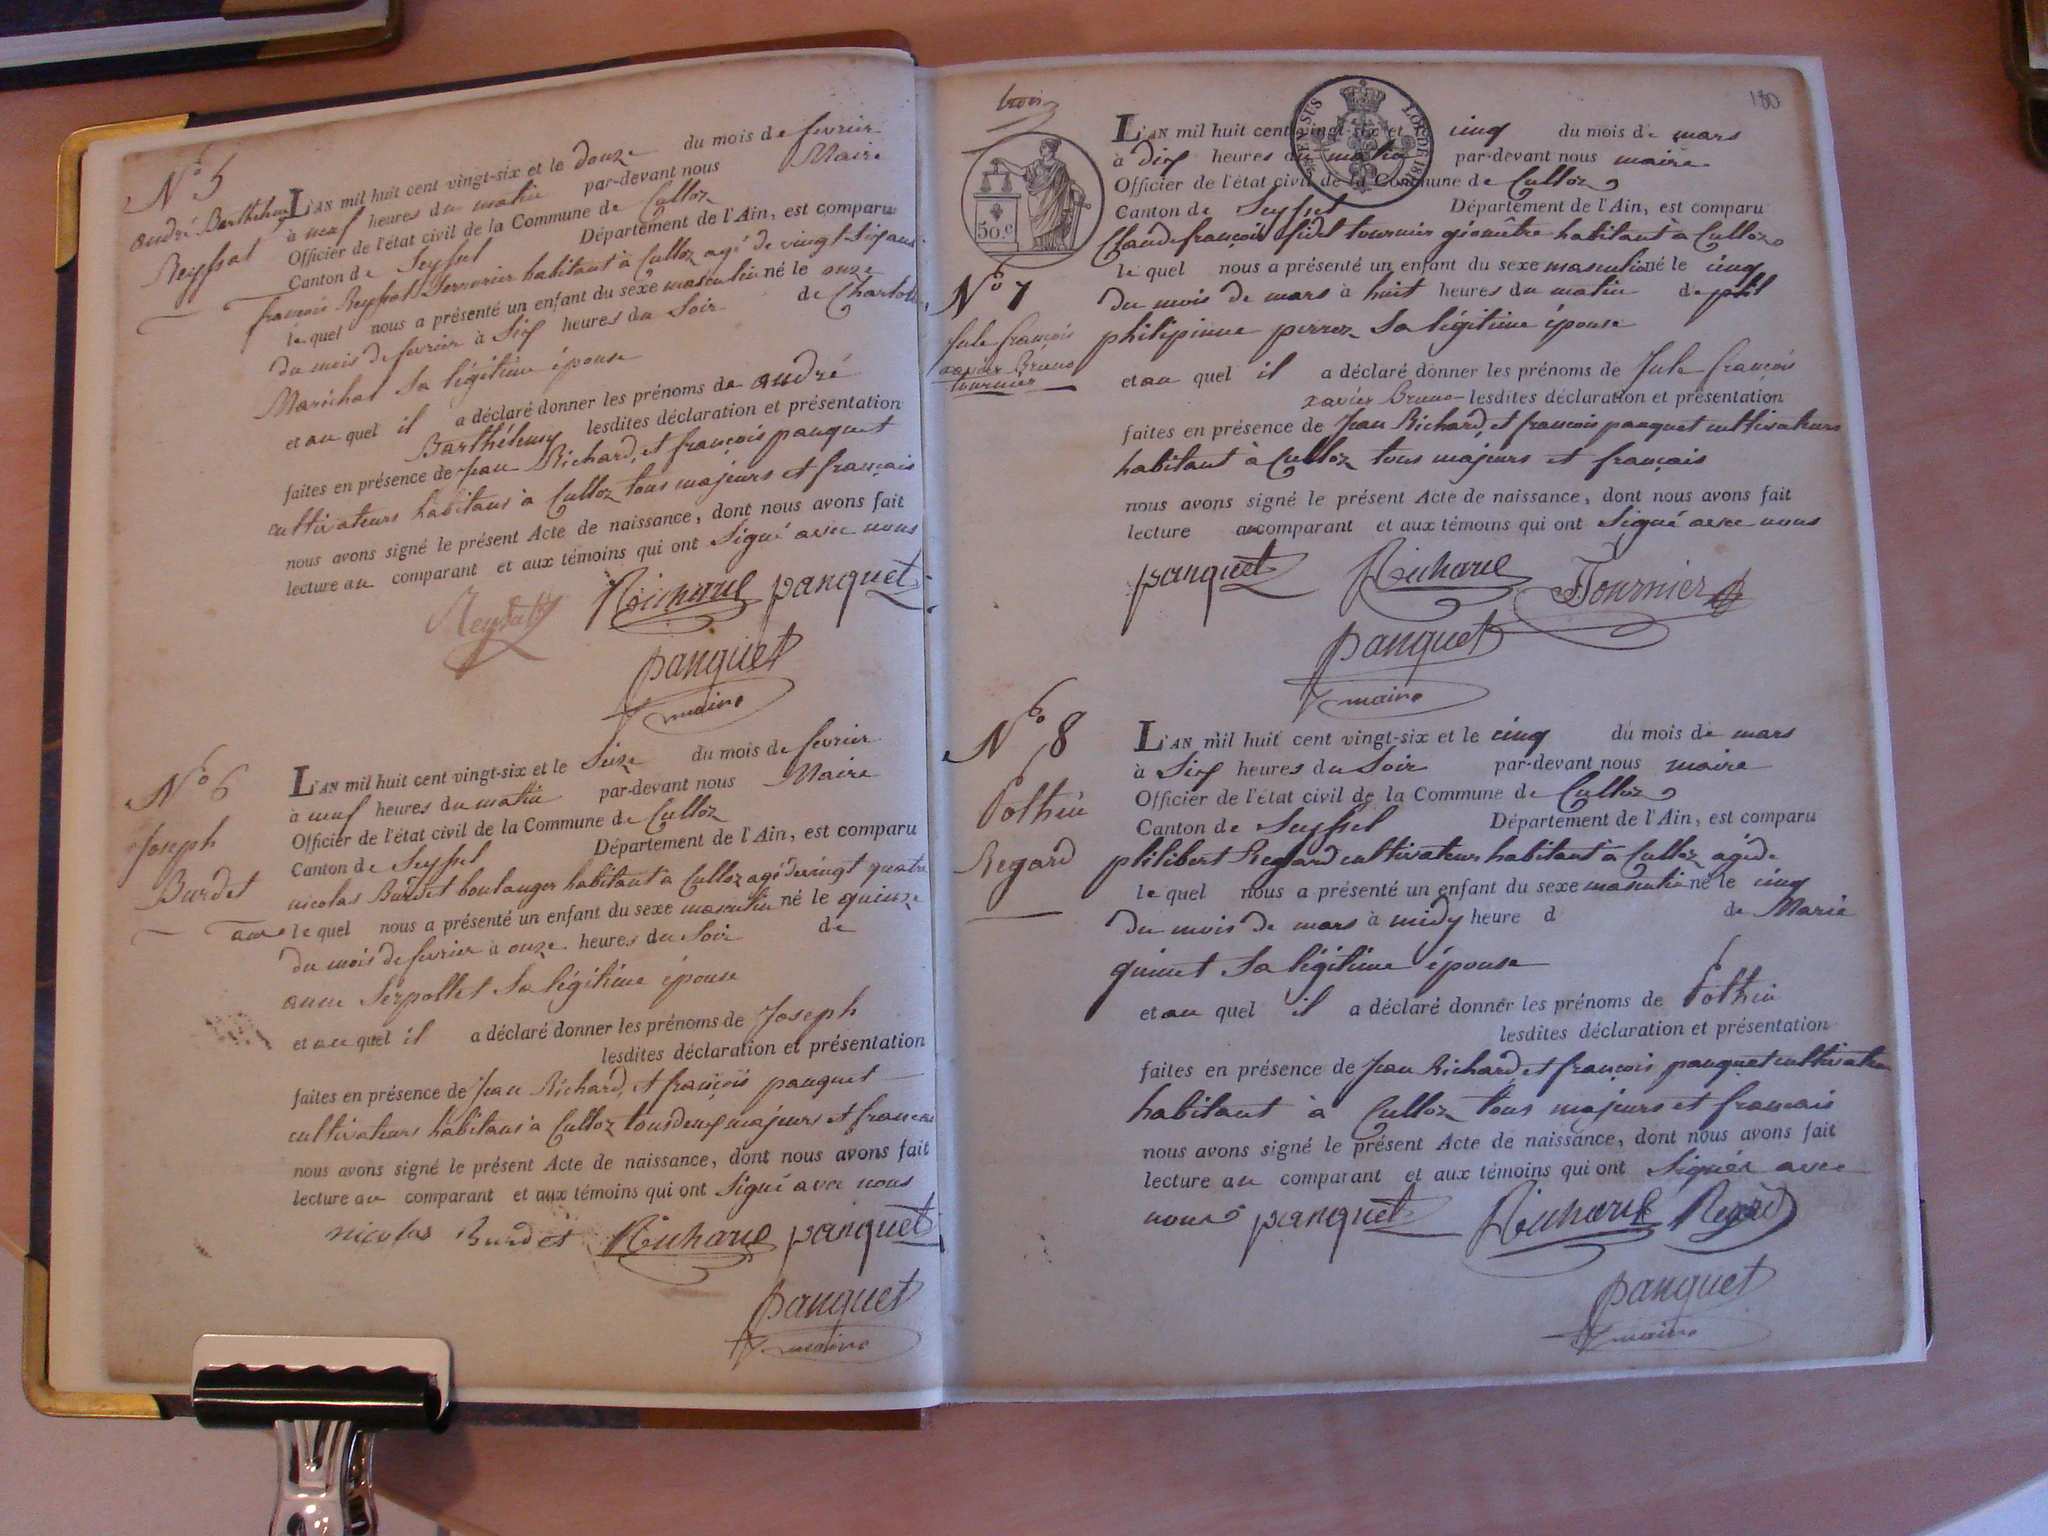 N° 5
andré Barthélemy
Reyssat
L'AN mil huit cent vingt-six et le douze du mois de fevrier
à neuf heures du matin par-devant nous Maire
Officier de l'état civil de la Commune de Culloz
Canton de Seyssel Département de l'Ain, est comparu
françois Reyssat Serrurier habitant à Culloz agé de vingt six ans
le quel nous a présenté un enfant du sexe masculin né le onze
du mois de fevrier à Six heures du Soir de Charlotte
Maréchal Sa légitime épouse
et au quel il a déclaré donner les prénoms de andré
Barthélemy lesdites déclaration et présentation
faites en présence de Jean Richard, et françois panquet
cultivateurs habitans à Culloz tous majeurs et français
nous avons signé le présent Acte de naissance, dont nous avons fait
lecture au comparant et aux témoins qui ont Signé avec nous
Reyssat Richard panquet
panquet
maire
N° 6
Joseph
Burdet
L'AN mil huit cent vingt-six et le Seize du mois de fevrier
à neuf heures du matin par-devant nous Maire
Officier de l'état civil de la Commune de Culloz
Canton de Seyssel Département de l'Ain, est comparu
nicolas Burdet boulanger habitant à Culloz agé de vingt quatre
ans le quel nous a présenté un enfant du sexe masculin né le quinze
du mois de fevrier à onze heures du Soir de
anne Serpollet Sa légitime épouse
et au quel il a déclaré donner les prénoms de Joseph
lesdites déclaration et présentation
faites en présence de Jean Richard, et françois panquet
cultivateurs habitans à Culloz tous deux majeurs et français
nous avons signé le présent Acte de naissance, dont nous avons fait
lecture au comparant et aux témoins qui ont Signé avec nous
nicolas Burdet Richard panquet
panquet
maire
trois
130
50.c
N° 7
Jule françois
xavier Bruno
tournier
L'AN mil huit cent vingt-six et le cinq du mois de mars
à dix heures du matin par-devant nous maire
Officier de l'état civil de la Commune de Culloz
Canton de Seyssel Département de l'Ain, est comparu
Claude françois fidel tournier géomètre habitant à Culloz
le quel nous a présenté un enfant du sexe masculin né le cinq
du mois de mars à huit heures du matin de phil
philipinne perrez Sa légitime épouse
et au quel il a déclaré donner les prénoms de Jule françois
xavier Bruno lesdites déclaration et présentation
faites en présence de Jean Richard, et françois panquet cultivateurs
habitant à Culloz tous majeurs et français
nous avons signé le présent Acte de naissance, dont nous avons fait
lecture au comparant et aux témoins qui ont Signé avec nous
panquet Richard Tournier
panquet
maire
N° 8
Pothin
Regard
L'AN mil huit cent vingt-six et le cinq du mois de mars
à Six heures du Soir par-devant nous maire
Officier de l'état civil de la Commune de Culloz
Canton de Seyssel Département de l'Ain, est comparu
philibert Regard cultivateur habitant à Culloz agé de
le quel nous a présenté un enfant du sexe masculin né le cinq
du mois de mars à midy heure d de Marie
quinet Sa légitime épouse
et au quel il a déclaré donner les prénoms de Pothin
lesdites déclaration et présentation
faites en présence de Jean Richard, et françois panquet cultivateur
habitant à Culloz tous majeurs et français
nous avons signé le présent Acte de naissance, dont nous avons fait
lecture au comparant et aux témoins qui ont Signér avec
nous panquet Richard Regard
panquet
maire